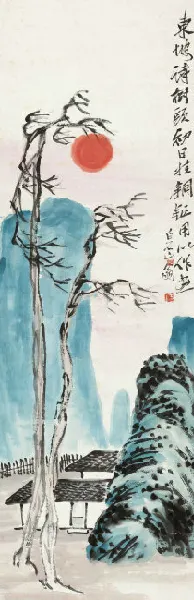 東坡詩樹頭初日挂銅鉦用作畫
白石山人